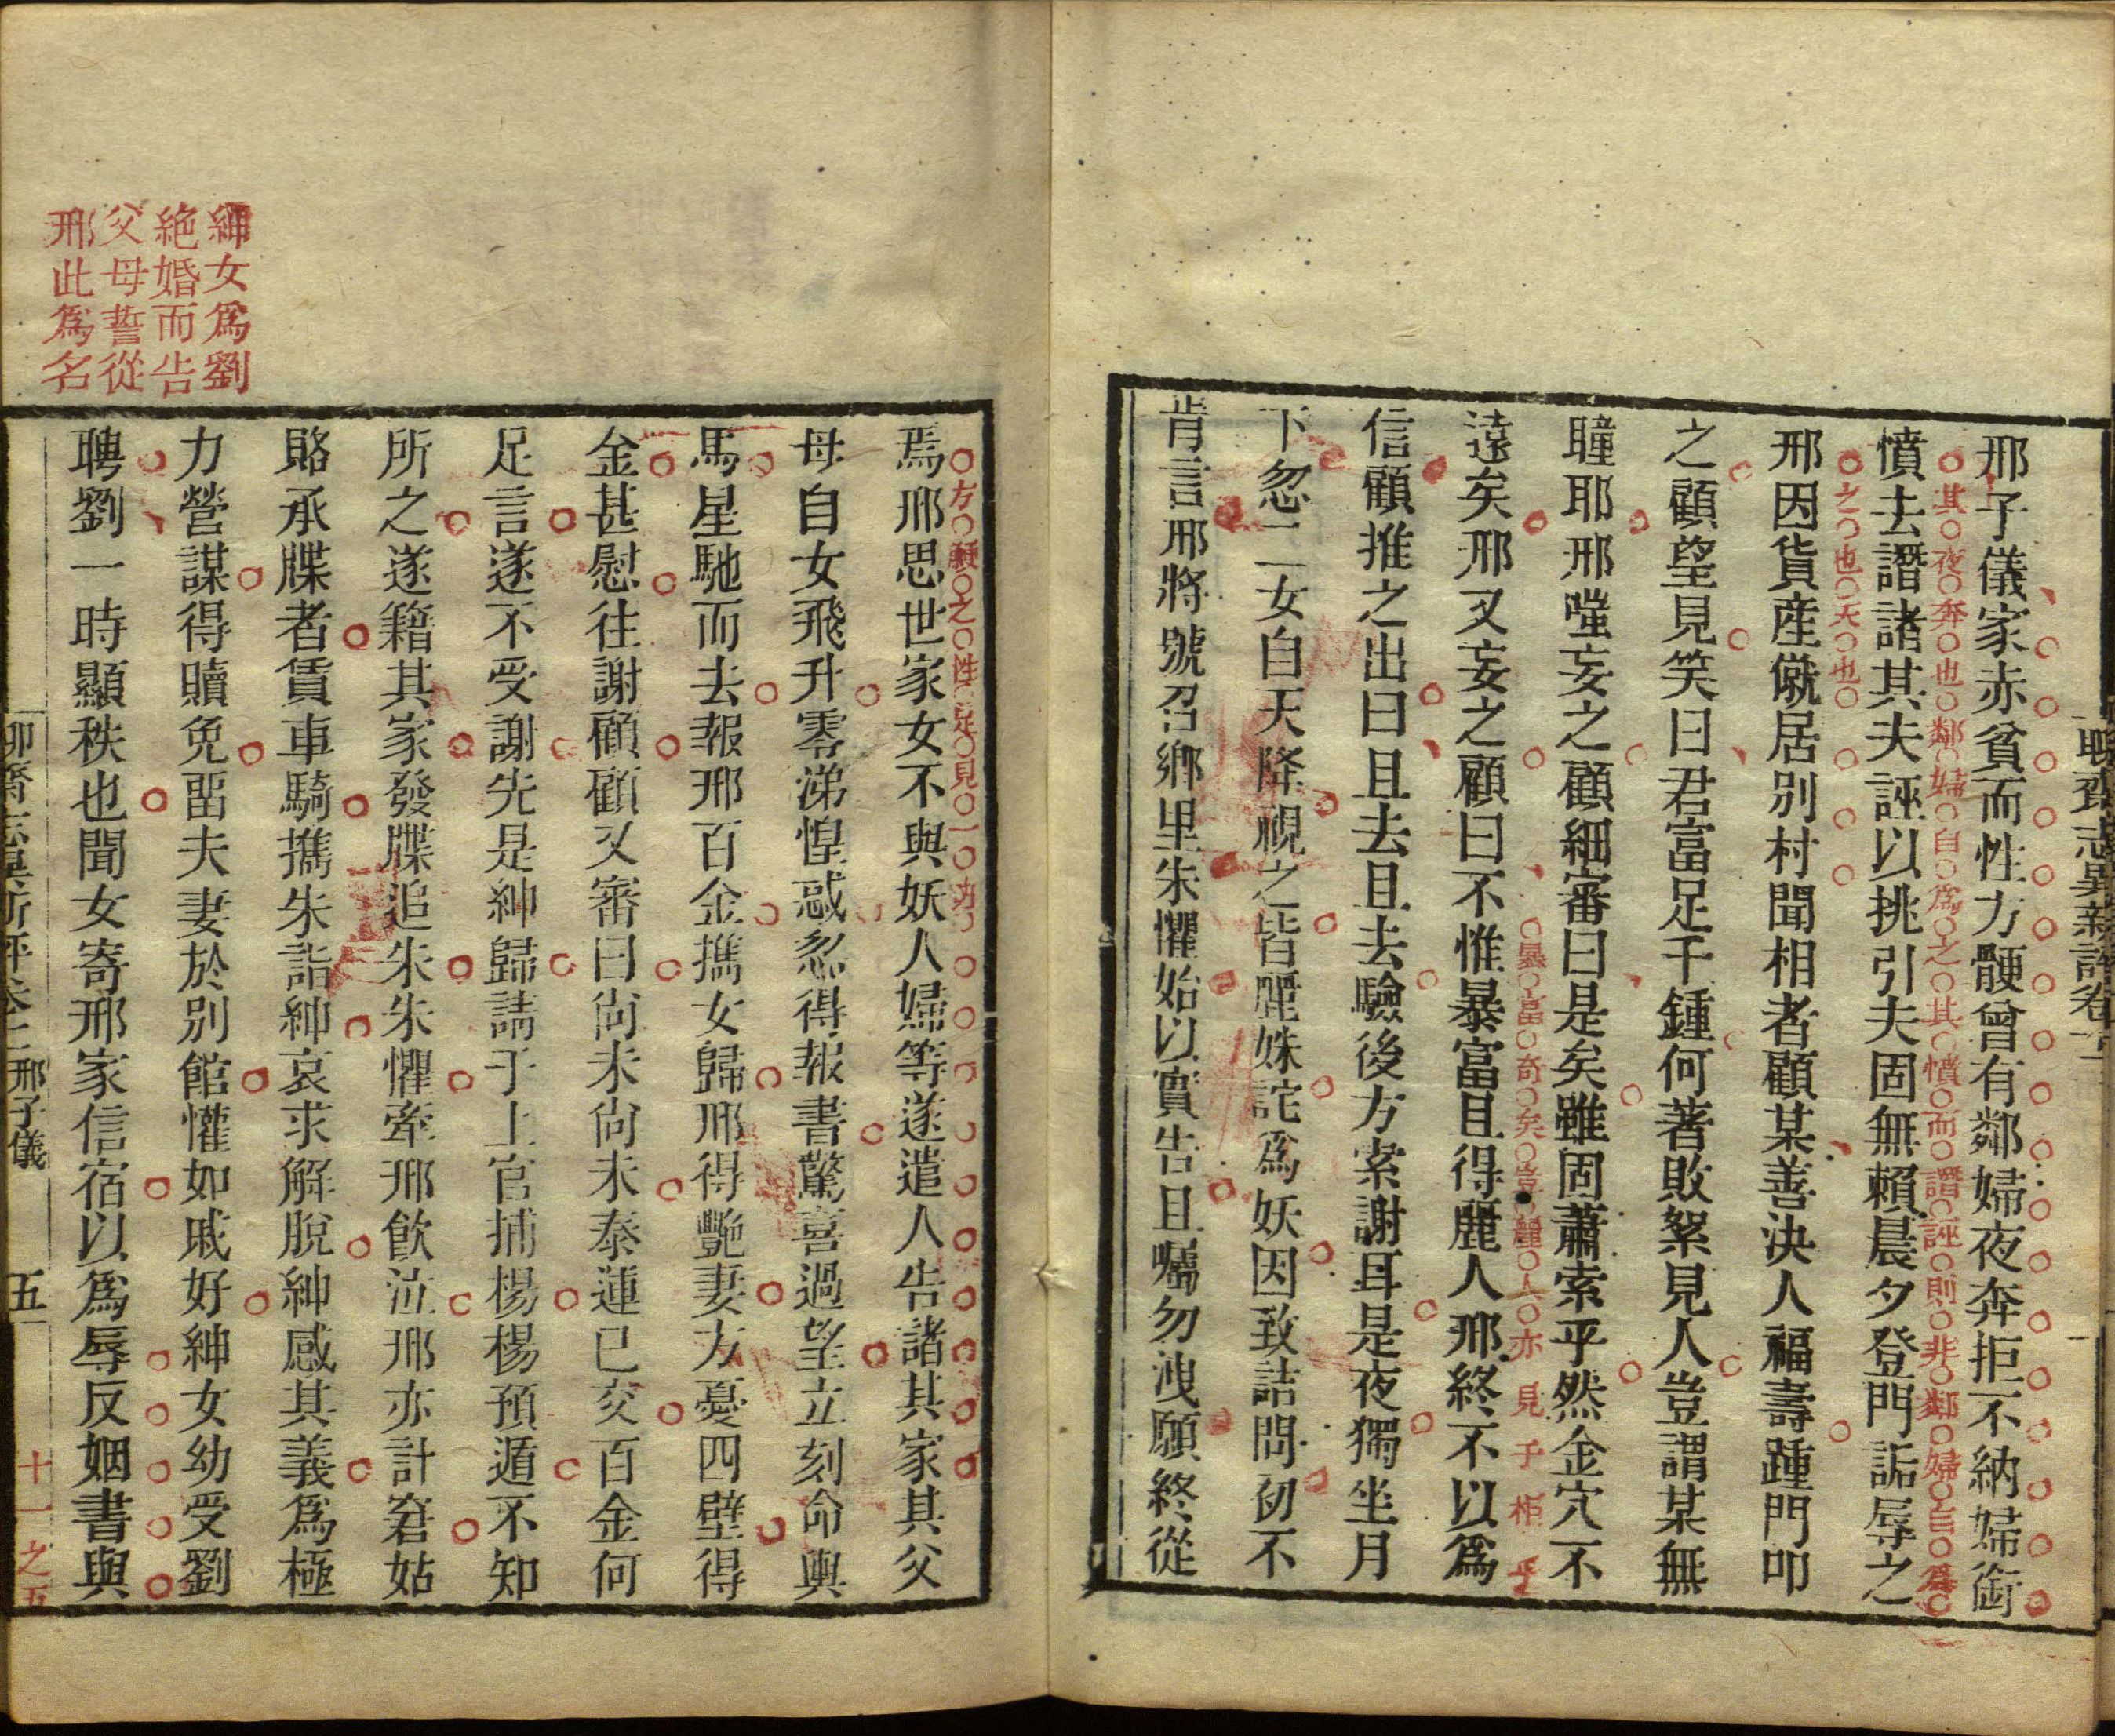 聊齋志異新評卷十二
邢子儀家赤貧而性方骾曾有鄰婦夜奔拒不納婦銜
其夜奔也鄰婦自爲之其憤而譖誣則非鄰婦自爲
憤去譖諸其夫誣以挑引夫固無賴晨夕登門詬辱之
之也天也
邢因貨産僦居别村聞相者顧某善決人福壽踵門叩
之顧望見笑曰君富足千鍾何著敗絮見人豈謂某無
瞳耶邢嗤妄之顧細審曰是矣雖固蕭索乎然金穴不
暴富奇矣豈麗人亦見子柜乎
遠矣邢又妄之顧曰不惟暴富且得麗人邢終不以爲
信顧推之出曰且去且去驗後方索謝耳是夜獨坐月
下忽二女自天降視之皆麗姝詫爲妖因致詰問初不
肯言邢將號召鄉里朱懼始以實告且囑勿洩願終從
方骾之性足見一班
焉邢思世家女不與妖人婦等遂遣人告諸其家其父
母自女飛升零涕惶惑忽得報書驚喜過望立刻命輿
馬星馳而去報邢百金攜女歸邢得艷妻方憂四壁得
金甚慰往謝顧顧又審曰尙未尙未泰運已交百金何
足言遂不受謝先是紳歸請于上官捕楊楊預遁不知
所之遂籍其家發牒追朱朱懼牽邢飮泣邢亦計窘姑
賂承牒者賃車騎攜朱詣紳哀求解脫紳感其義爲極
力營謀得贖免畱夫妻於别館懽如戚好紳女幼受劉
聘劉一時顯秩也聞女寄邢家信宿以爲辱反姻書與
紳女爲劉
絶婚而告
父母誓從
邢此爲名
聊齋志異新評卷十二 邢子儀 五
十一之五